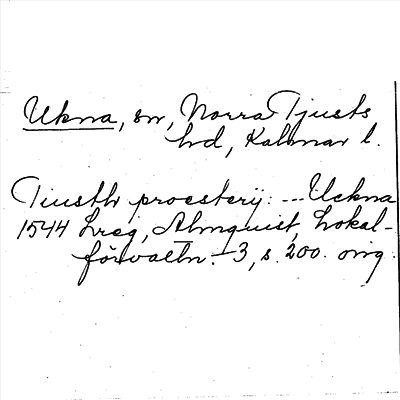 Ukna, sn, Norra Tjusts
hd, Kalmar l.
Tiusth proesterij: --- Uckna
1544 Lreg, Almquist, Lokal-
förvaltn. 3, s. 200. orig.